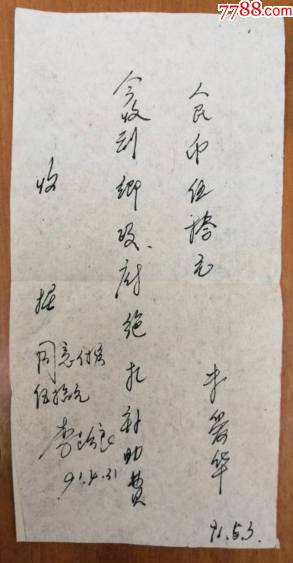 7788.com
收据
今收到鄉政府绝扎补助费
人民币伍拾元
华
91.5.3.
同意付
伍拾元
李
91.4.31